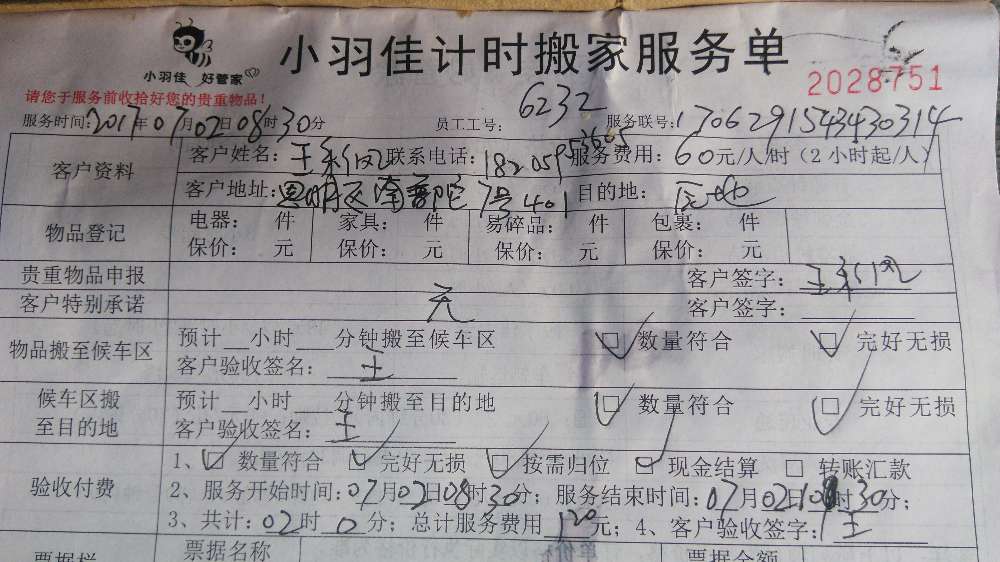 小羽佳计时搬家服务单
小羽佳 好管家
2028751
请您于服务前收拾好您的贵重物品！
6232
服务时间：2017年07月02日08时30分 员工工号： 服务联号：170629154343 0314
客户资料 客户姓名：王 联系电话：18205953605 服务费用：60元/人/时（2小时起/人）
客户地址：思明区南普陀7号401 目的地：
物品登记 电器： 件 家具： 件 易碎品： 件 包裹： 件
保价： 元 保价： 元 保价： 元 保价： 元
贵重物品申报 客户签字：王
客户特别承诺 无 客户签字：
物品搬至候车区 预计__小时___分钟搬至候车区 数量符合 完好无损
客户验收签名：王
候车区搬至目的地 预计__小时___分钟搬至目的地 数量符合 完好无损
客户验收签名：王
验收付费 1、数量符合 完好无损 按需归位 现金结算 转账汇款
2、服务开始时间：07月02日08时30分；服务结束时间：07月02日10时30分；
3、共计：02时0分；总计服务费用120元；4、客户验收签字：王
票据栏 票据名称 票据金额